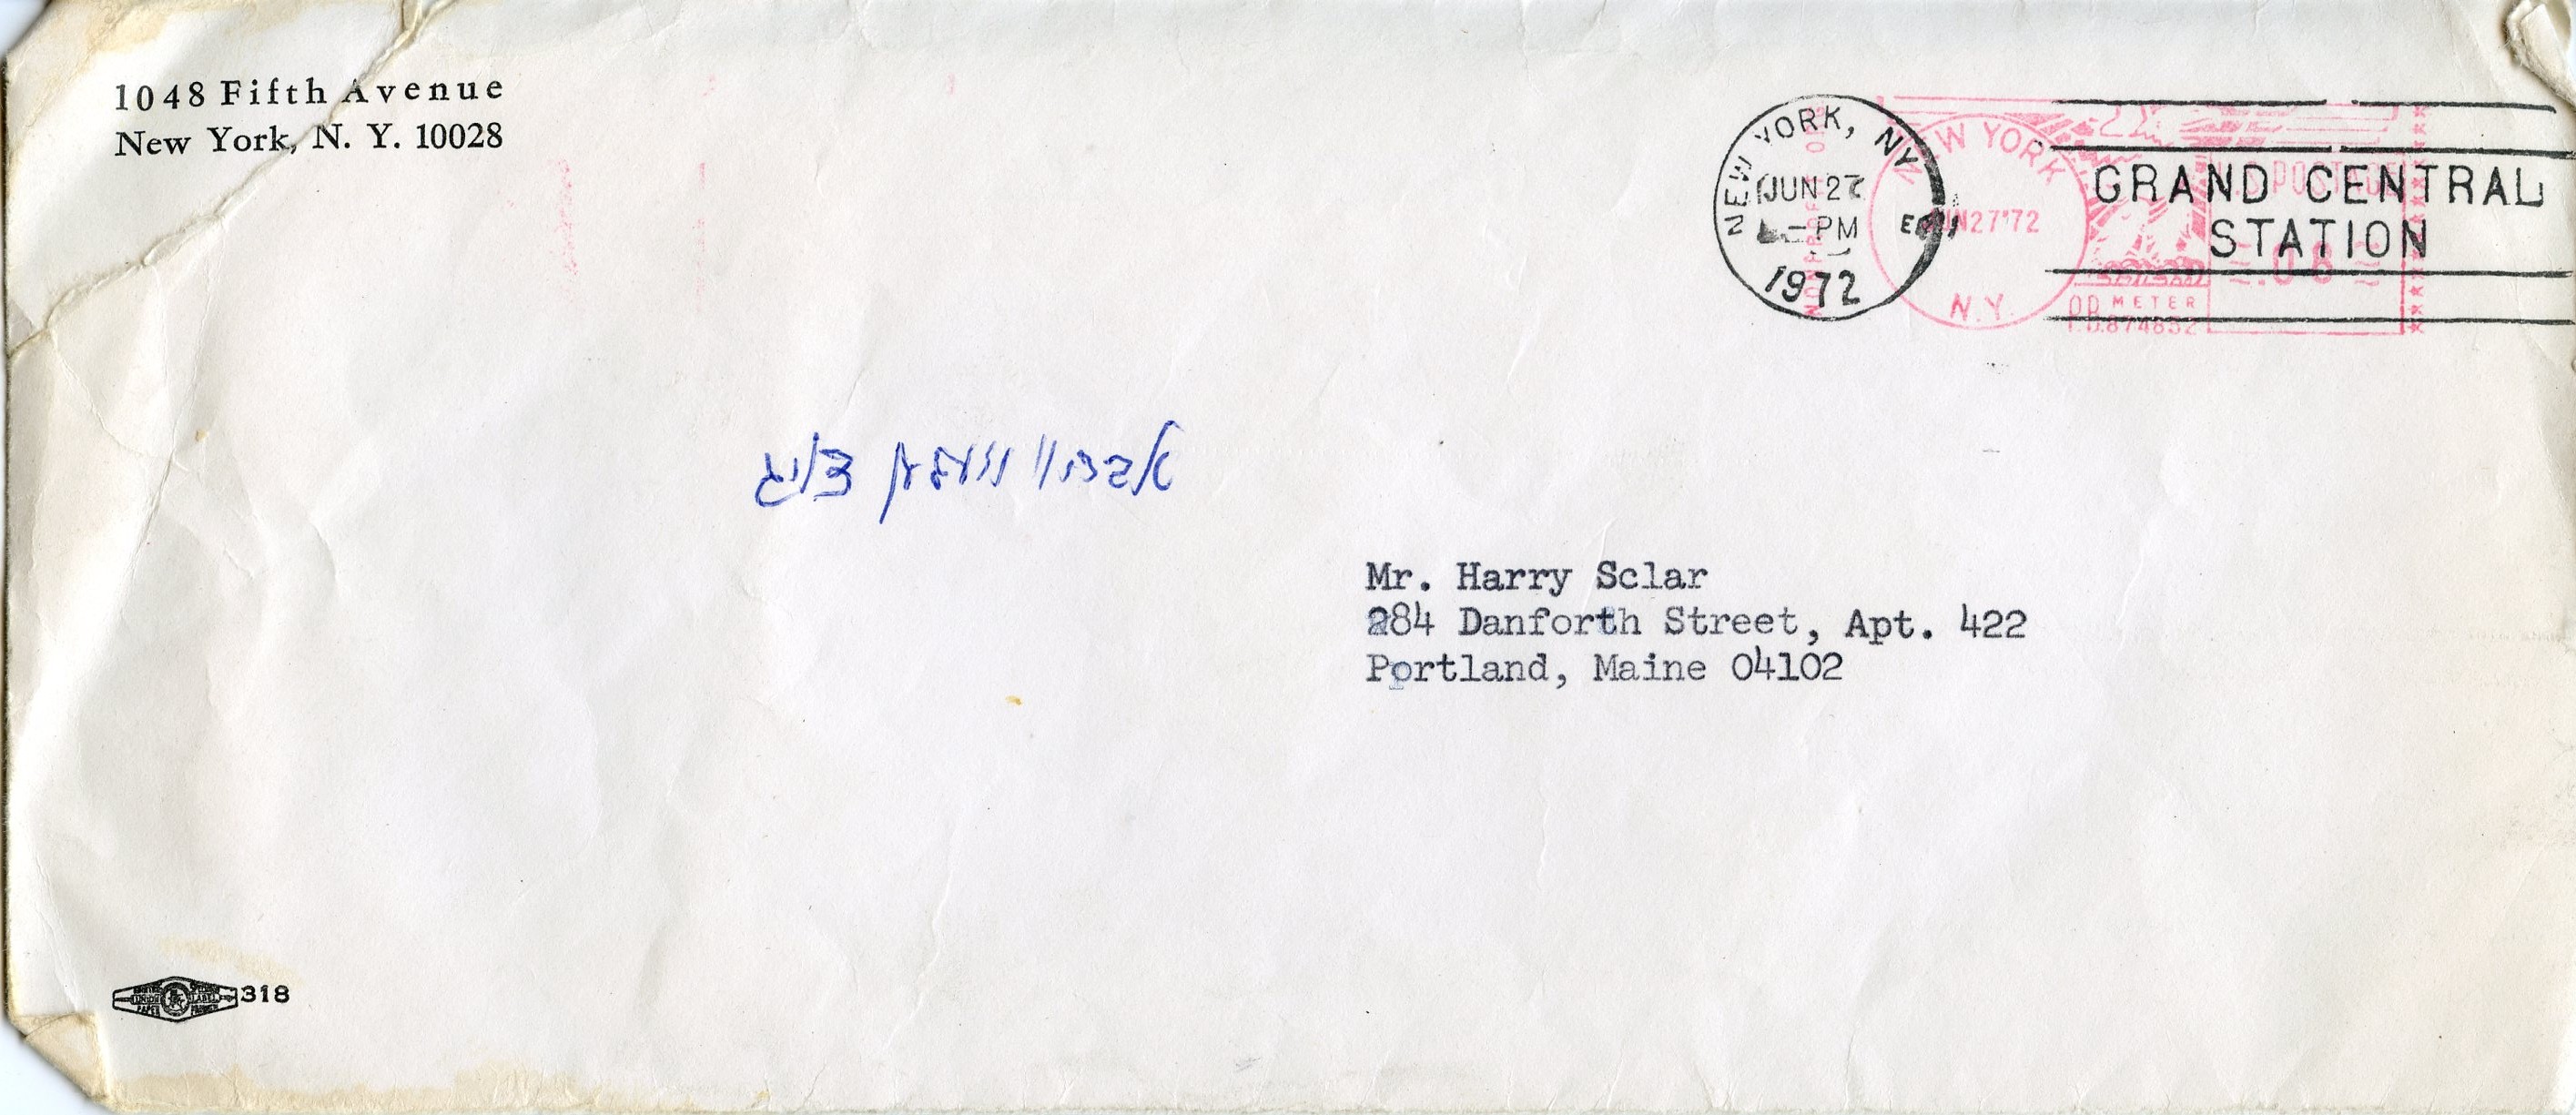 1048 Fifth Avenue
New York, N. Y. 10028
NEW YORK, NY
JUN 27
PM
1972
GRAND CENTRAL
STATION
NEW YORK
JUN27'72
N.Y.
U.S. POSTAGE
.08
METER
Mr. Harry Sclar
284 Danforth Street, Apt. 422
Portland, Maine 04102
UNION LABEL
318